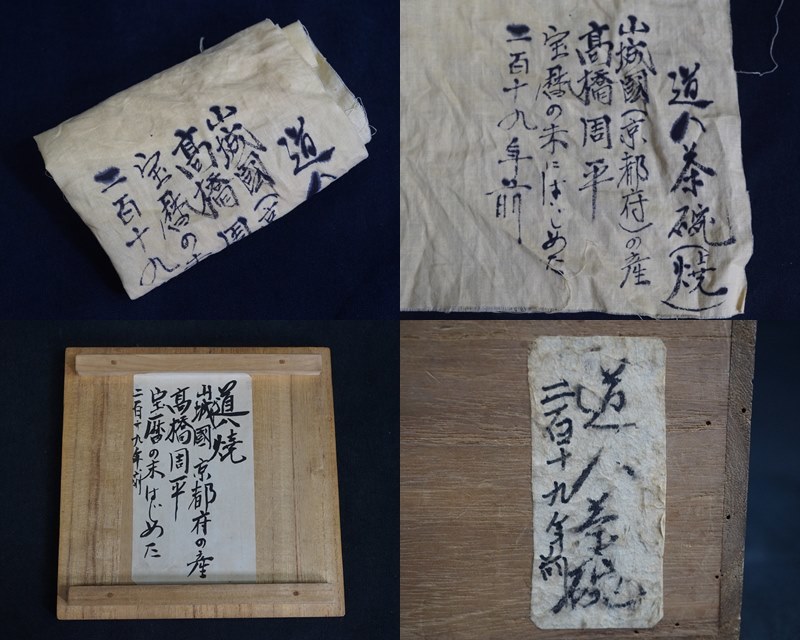 道八
山城國(京
高橋周
宝暦の末
二百十九
道八茶碗(焼)
山城國(京都府)の産
高橋周平
宝暦の末にはじめた
二百十九年前
道八焼
山城國京都府の産
高橋周平
宝暦の末はじめた
二百十九年前
道八茶碗
二百十九年前